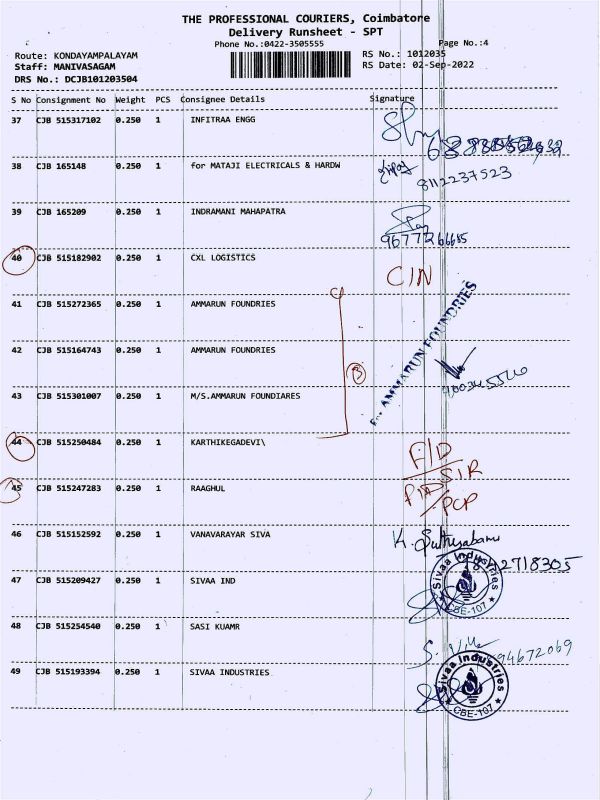 THE PROFESSIONAL COURIERS, Coimbatore
Delivery Runsheet - SPT
Phone No.:0422-3505555
Page No.:4
Route: KONDAYAMPALAYAM
RS No.: 1012035
Staff: MANIVASAGAM
RS Date: 02-Sep-2022
DRS No.: DCJB101203504
S No Consignment No Weight PCS Consignee Details Signature
37 CJB 515317102 0.250 1 INFITRAA ENGG
38 CJB 165148 0.250 1 for MATAJI ELECTRICALS & HARDW
8112237523
39 CJB 165209 0.250 1 INDRAMANI MAHAPATRA
40 CJB 515182902 0.250 1 CXL LOGISTICS
CIN
41 CJB 515272365 0.250 1 AMMARUN FOUNDRIES
For AMMARUN FOUNDRIES
42 CJB 515164743 0.250 1 AMMARUN FOUNDRIES
3
43 CJB 515301007 0.250 1 M/S.AMMARUN FOUNDIARES
44 CJB 515250484 0.250 1 KARTHIKEGADEVI\
F/D
SIR
45 CJB 515247283 0.250 1 RAAGHUL
PCP
46 CJB 515152592 0.250 1 VANAVARAYAR SIVA
47 CJB 515209427 0.250 1 SIVAA IND
Sivaa Industries
CBE-107
48 CJB 515254540 0.250 1 SASI KUAMR
94672069
49 CJB 515193394 0.250 1 SIVAA INDUSTRIES
Sivaa Industries
CBE-107